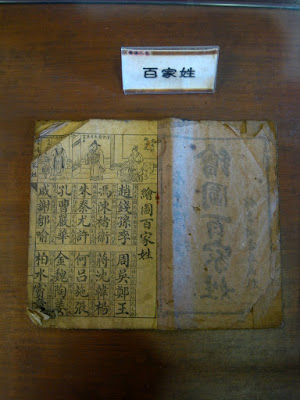 百家姓
繪圖百家姓
繪圖百家姓
趙錢孫李 周吳鄭王
馮陳褚衛 蔣沈韓楊
朱秦尤許 何呂施張
孔曹嚴華 金魏陶姜
戚謝鄒喻 柏水竇